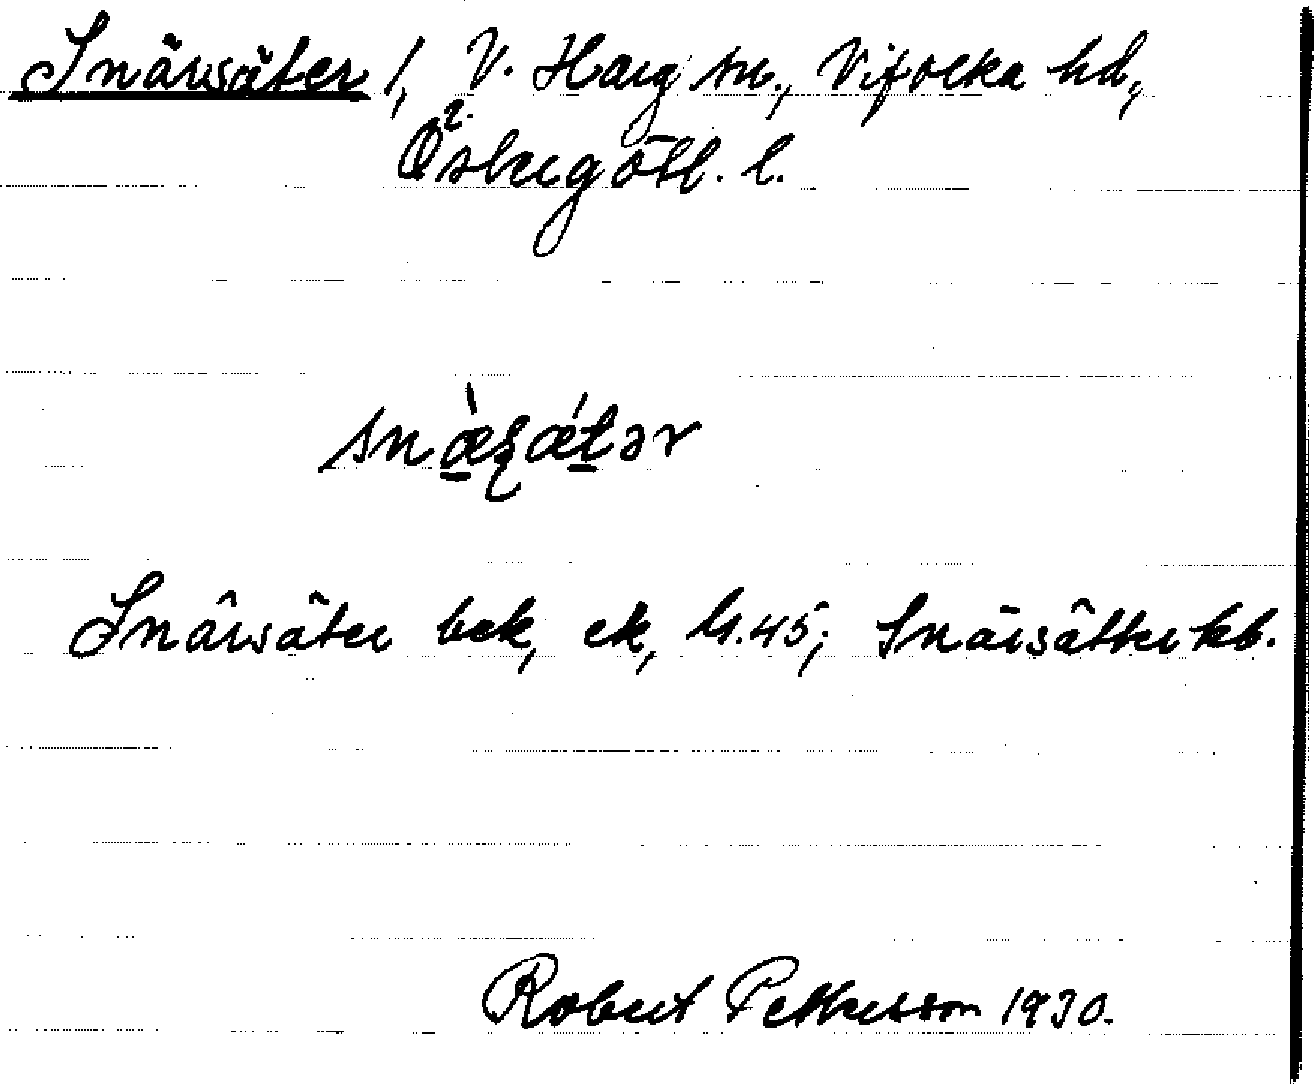 Snärsäter 1, V. Harg sn., Vifolka hd,
Östergötl. l.
snæ̀ʂǽtər
Snärsäter bek, ek, G.45; Snärsätter kb.
Robert Pettersson 1930.